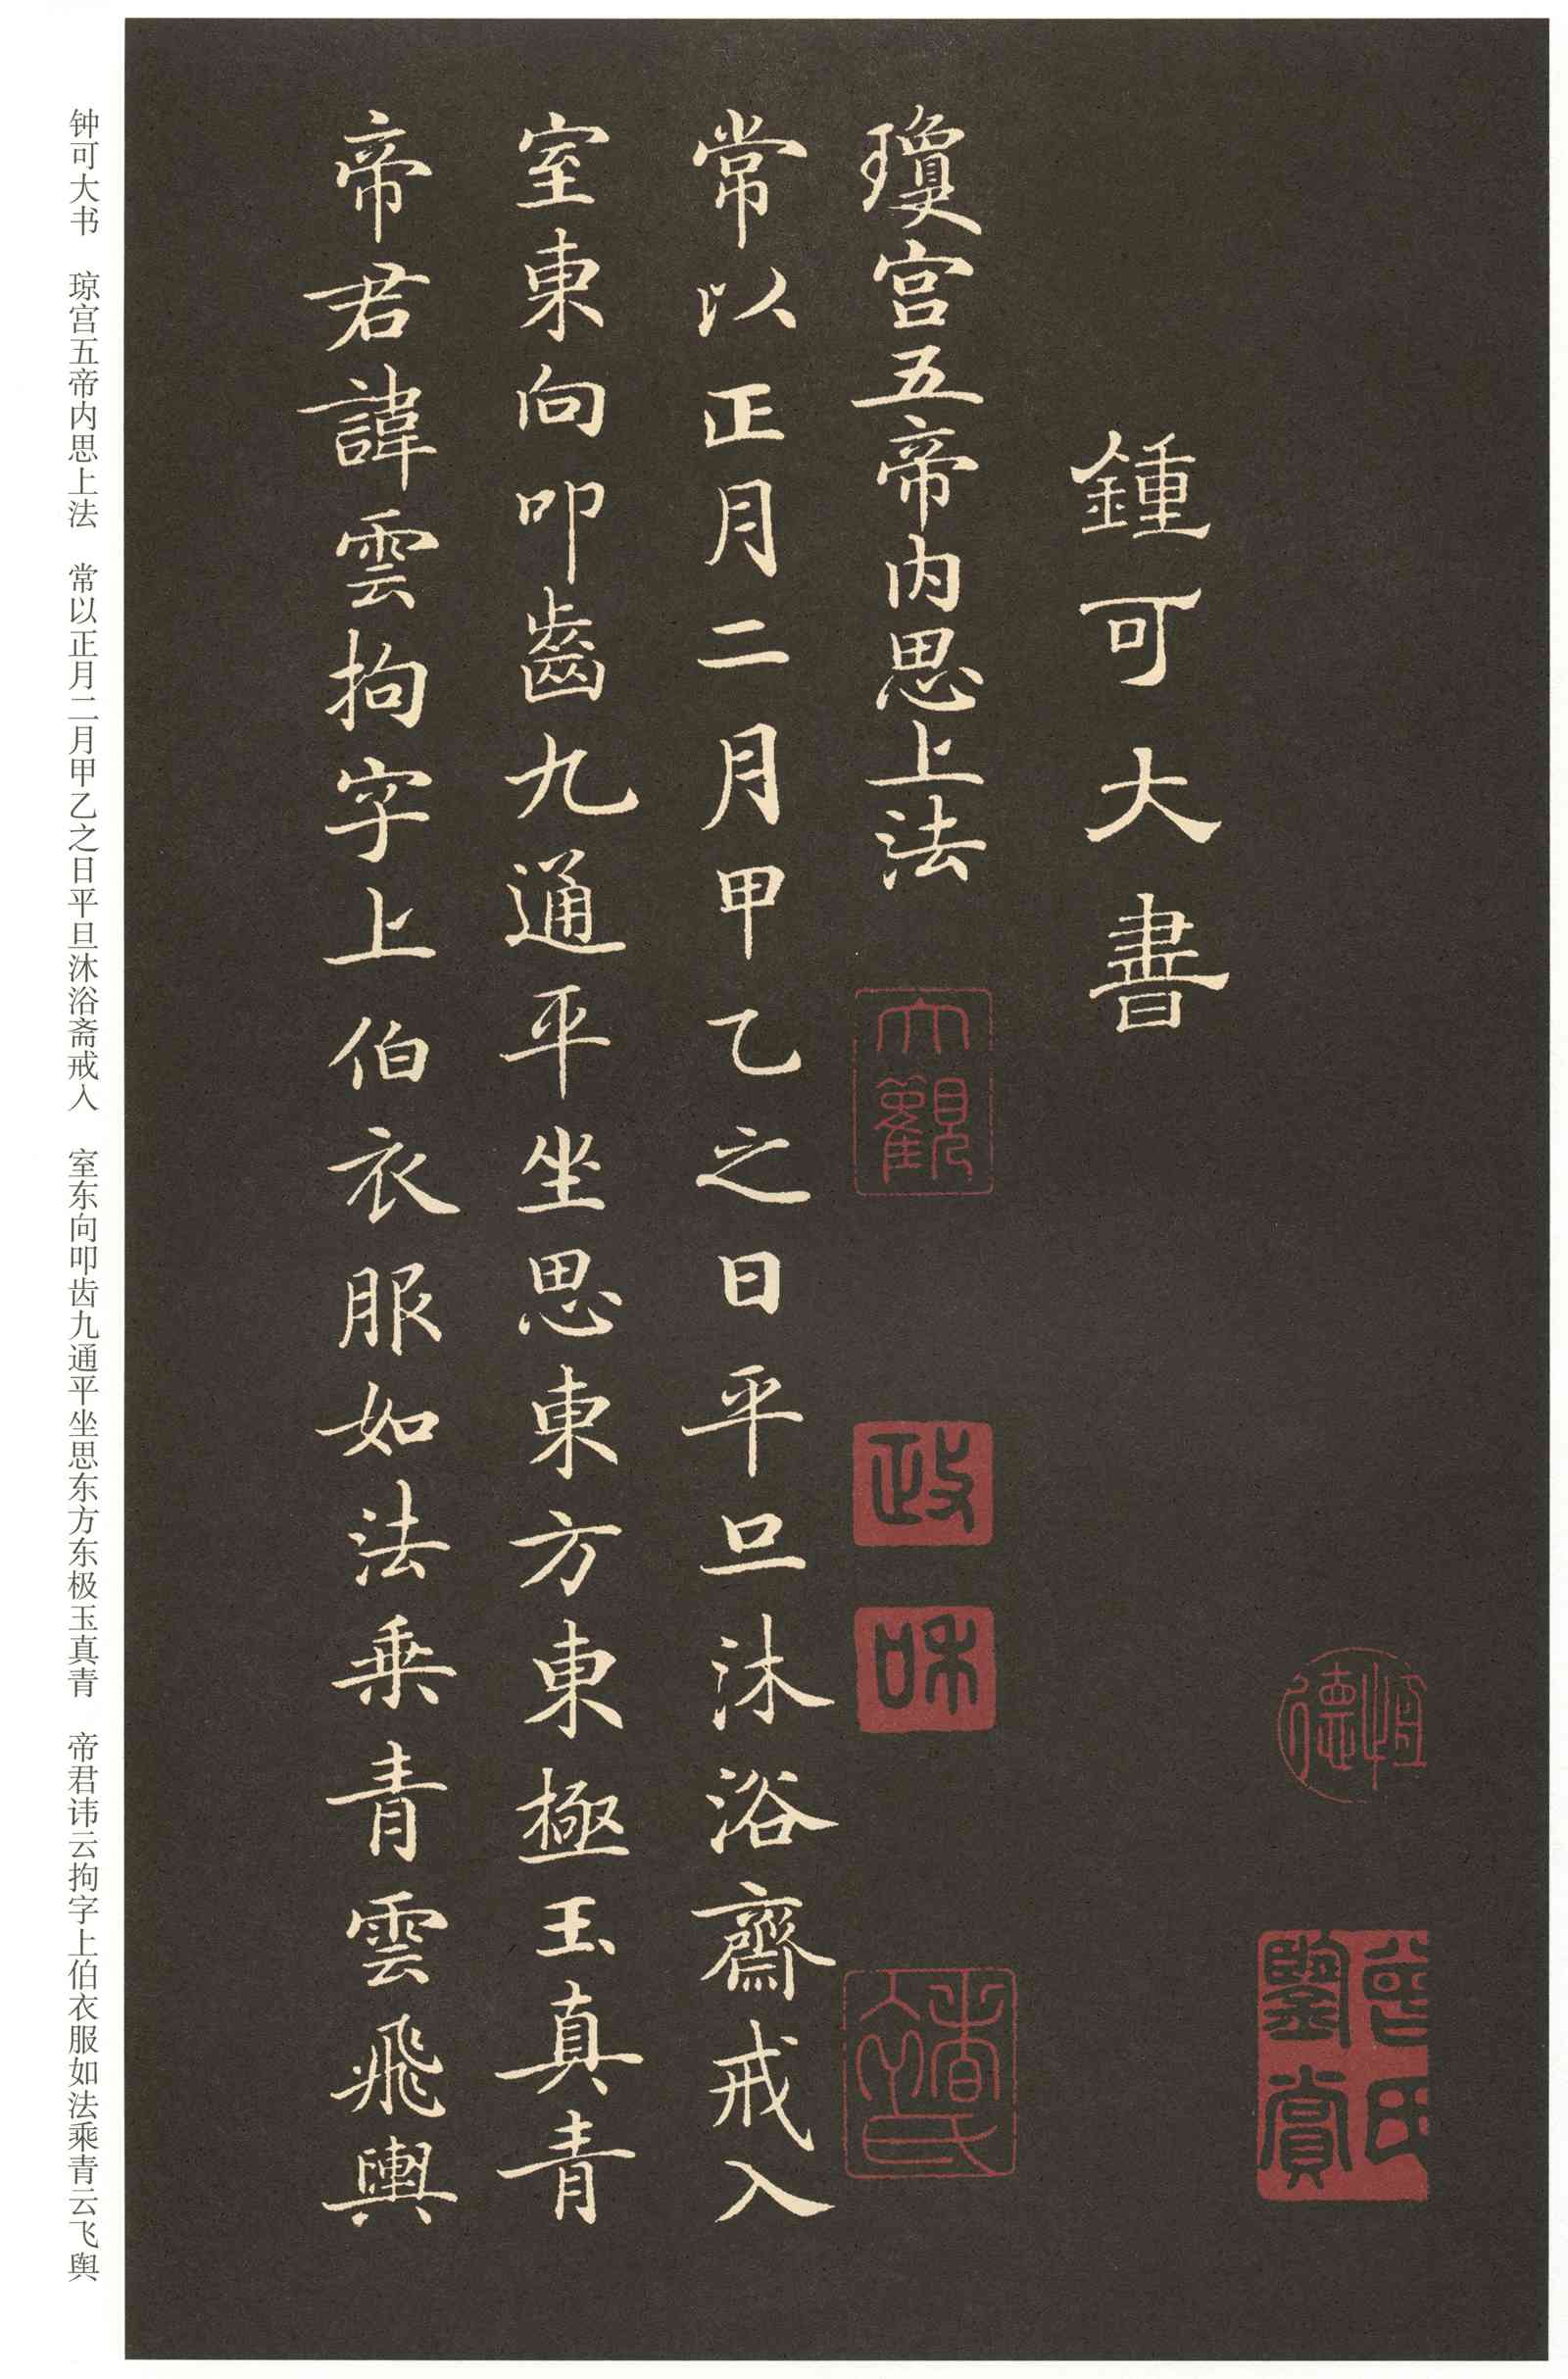 鍾可大書
瓊宮五帝內思上法
常以正月二月甲乙之日平旦沐浴齋戒入
室東向叩齒九通平坐思東方東極玉真青
帝君諱雲拘字上伯衣服如法乘青雲飛輿
大觀
政
和
恒德
鑒賞
钟可大书　琼宫五帝内思上法　常以正月二月甲乙之日平旦沐浴斋戒入　室东向叩齿九通平坐思东方东极玉真青　帝君讳云拘字上伯衣服如法乘青云飞舆